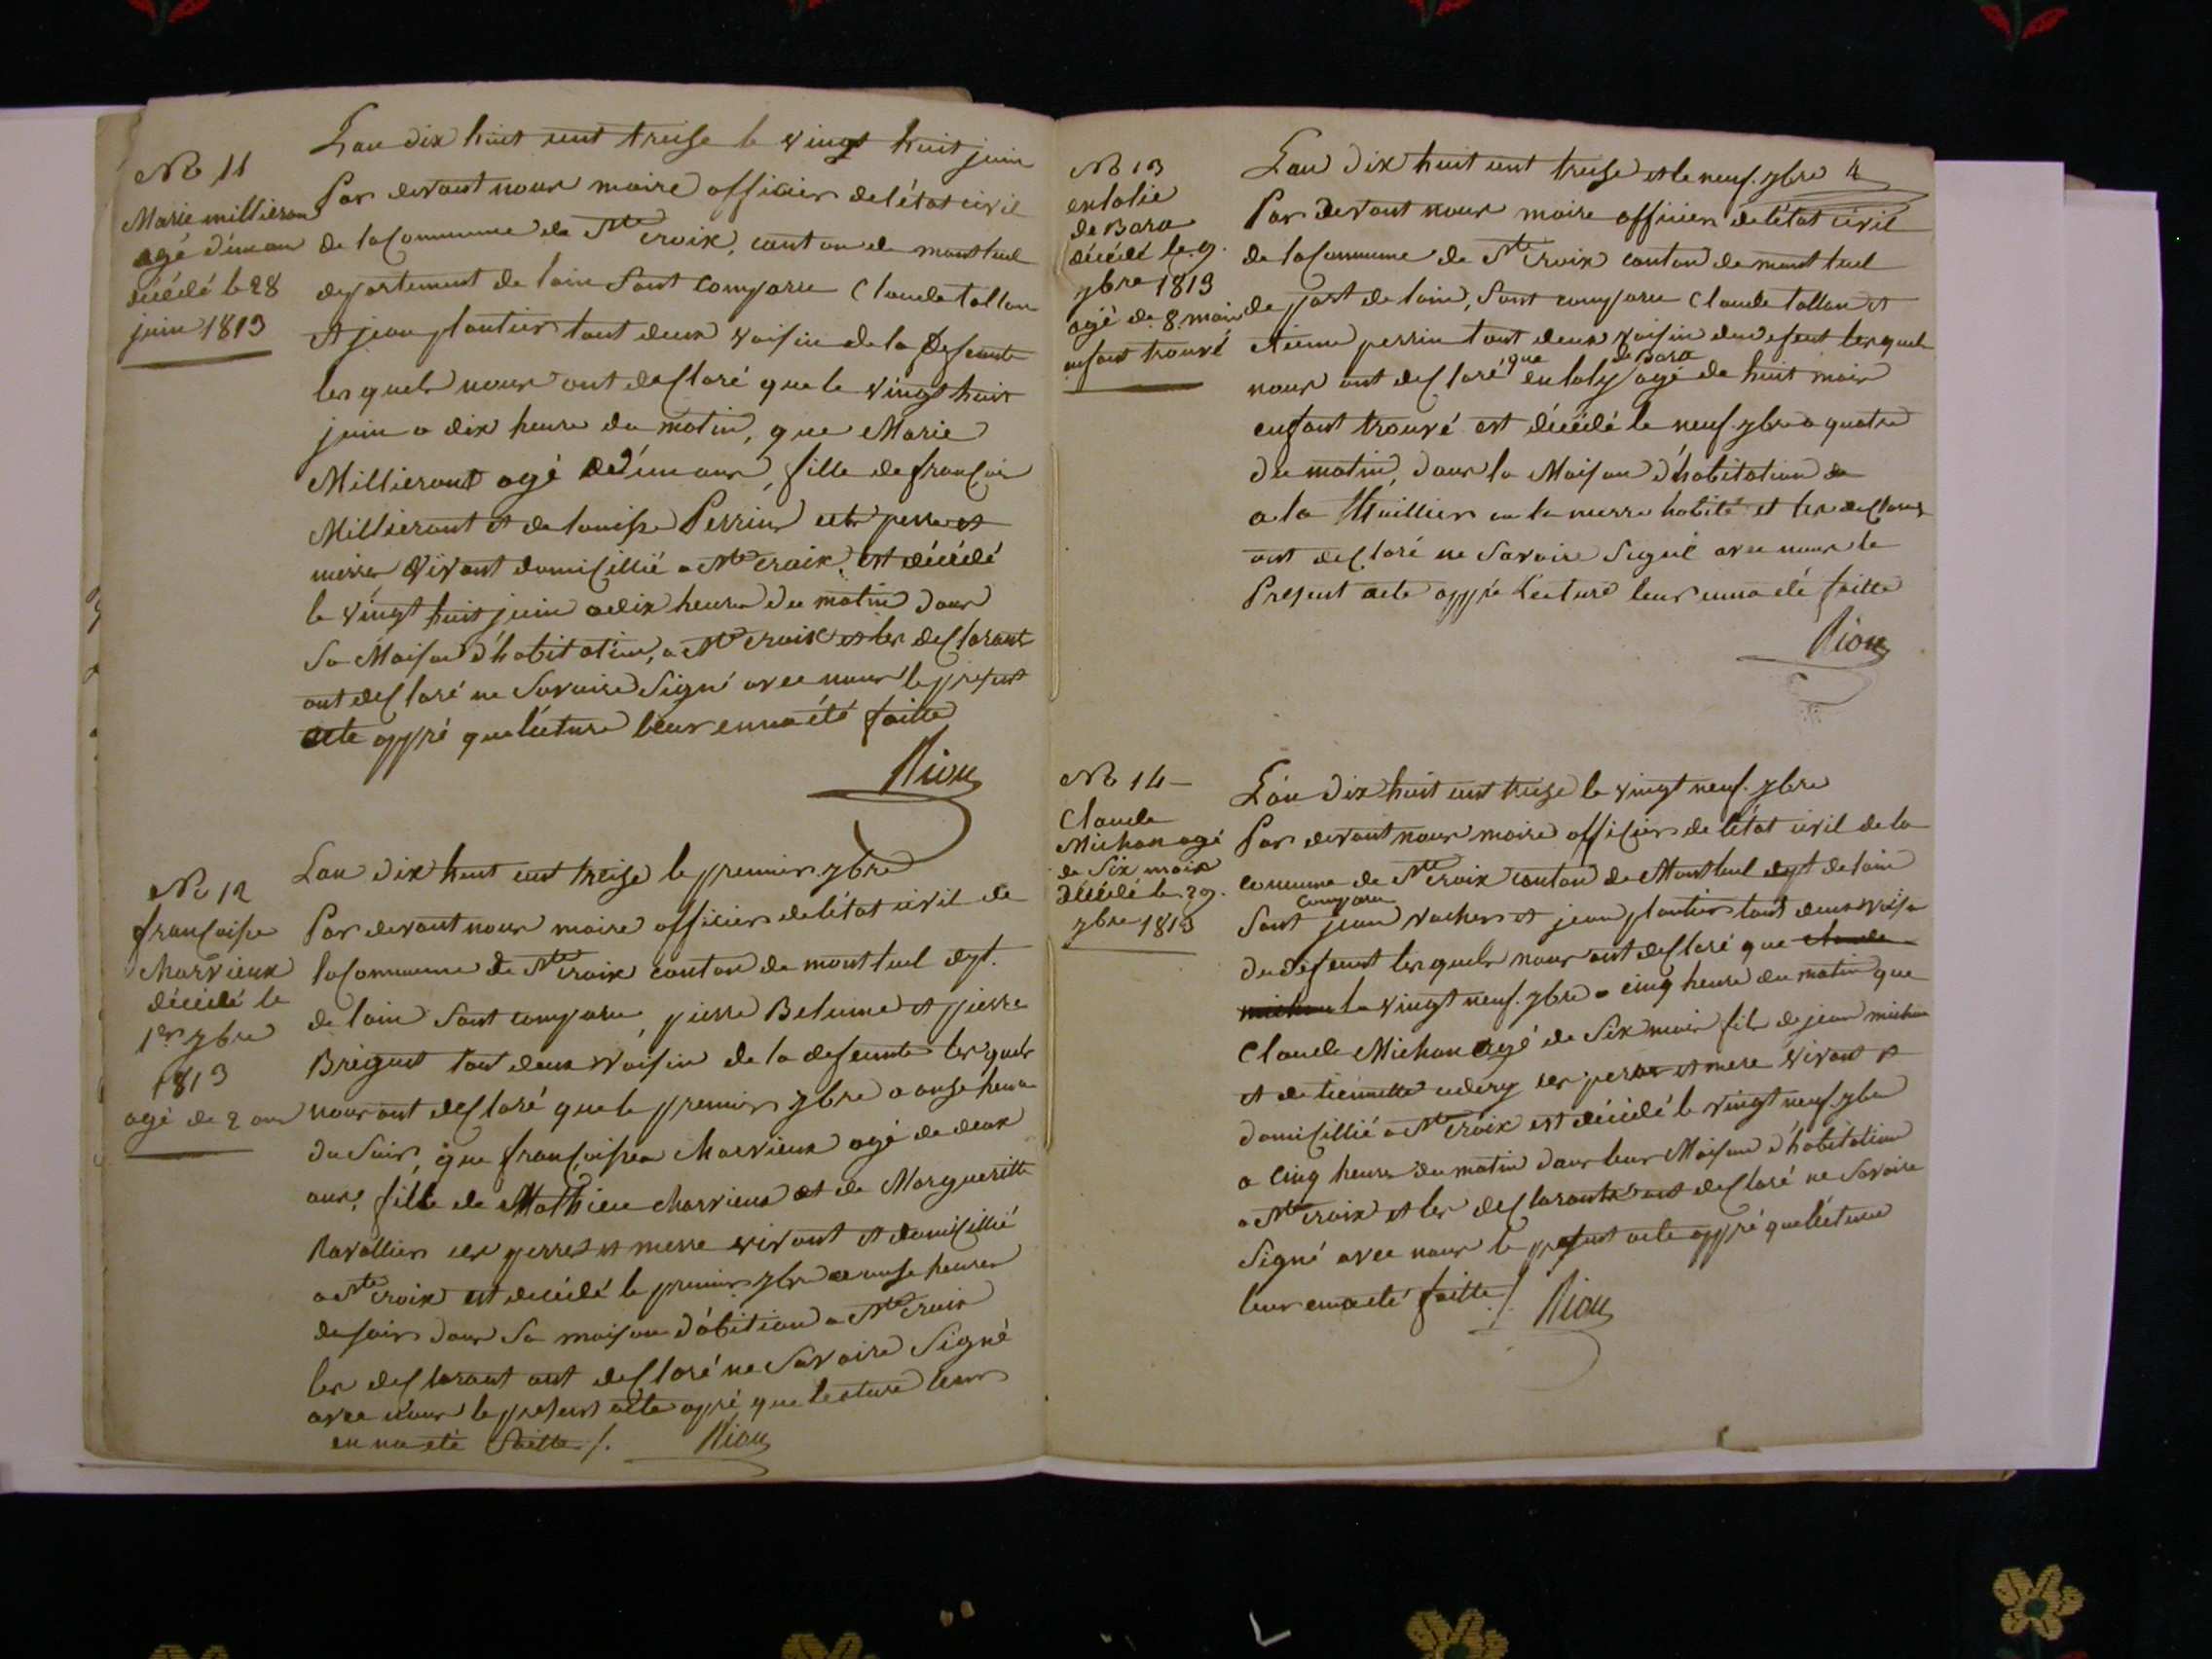 No 11
Marie millieron
agé d'un an
décédé le 28
juin 1813
L'an dix huit cent treise le vingt huit juin
Par devant nous maire officier de l'état civil
de la Commune de Ste Croix, canton de montluel
departement de lain Sont comparu Claude tallon
et jean plantier tout deux voisin de la defeunte
lesquels nous ont desclaré que le vingt huit
juin a dix heure du matin, que Marie
Millieront agé d'un ans, fille de françois
Millieront et de louisse Perrin ces perre et
merre vivant domicillié a Ste Croix, est décédé
le vingt huit juin a dix heures du matin dans
Sa Maison d'habitation, a Ste Croix et les desclarant
ont desclaré ne Savoire Signé avec nous le present
acte appré que lecture leur enna été faitte
Riou
No 12
françoise
Charvieux
décédé le
1er 7bre
1813
agé de 2 ans
Lan dix huit cent treise le premier 7bre
Par devant nous maire officier de l'état civil de
la Commune de Ste Croix canton de montluel dpt.
de lain Sont comparu, pierre Belume et pierre
Breguet tout deux Voisin de la defeunte lesquels
nous ont desclaré que le premier 7bre a onse heure
du Soir, que françoise Charvieux agé de deux
ans, fille de Mathieu Charvieux et de Margueritte
Ravallier ces perre et merre vivant et domicillié
a Ste Croix est decédé le premier 7bre a onse heures
du soir dans Sa maison d'abition a Ste Croix
les desclarant ont desclaré ne Savoire Signé
avec nous le present acte appré que lecture leurs
en na eté faitte /. Riou
No 13
enlalie
de Bara
décédé le 9.
7bre 1813
agé de 8 mois
enfant trouvé
L'an dix huit cent treise et le neuf. 7bre
Par devant nous maire officier de l'état civil
de la Commune de Ste Croix canton de montluel
de part de lain, Sont comparu Claude tallon et
etienne perrin tout deux voisin du defeunt lesquels
nous ont desclaré que enlaly de Bara agé de huit mois
enfant trouvé est décédé le neuf. 7bre a quatre
du matin, dans la Maison d'habitation
a la ou la nurre habité et les desclarant
ont desclaré ne Savoire Signé avec nous le
Present acte appré Lecture leur enna été faitte
Riou
No 14
Claude
Michon agé
de Six mois
Décédé le 29.
7bre 1813
L'an dix huit cent treise le vingt neuf. 7bre
Par devant nous maire officier de l'état civil de la
commune de Ste Croix canton de Montluel dpt de lain
Sont comparu jean vacher et jean plantier tout deux voisin
du defeunt lesquels nous ont desclaré que Claude
michon le vingt neuf. 7bre a cinq heure du matin que
Claude Michon agé de Six mois fils de jean michon
et de tiennette ces perre et mere vivant et
Domicillié a Ste Croix est décédé le vingt neuf 7bre
a cinq heures du matin dans leur Maison d'habitation
a Ste Croix et les desclarants ont desclaré ne Savoire
Signé avec nous le present acte appré que lecture
leur enna eté faitte /. Riou